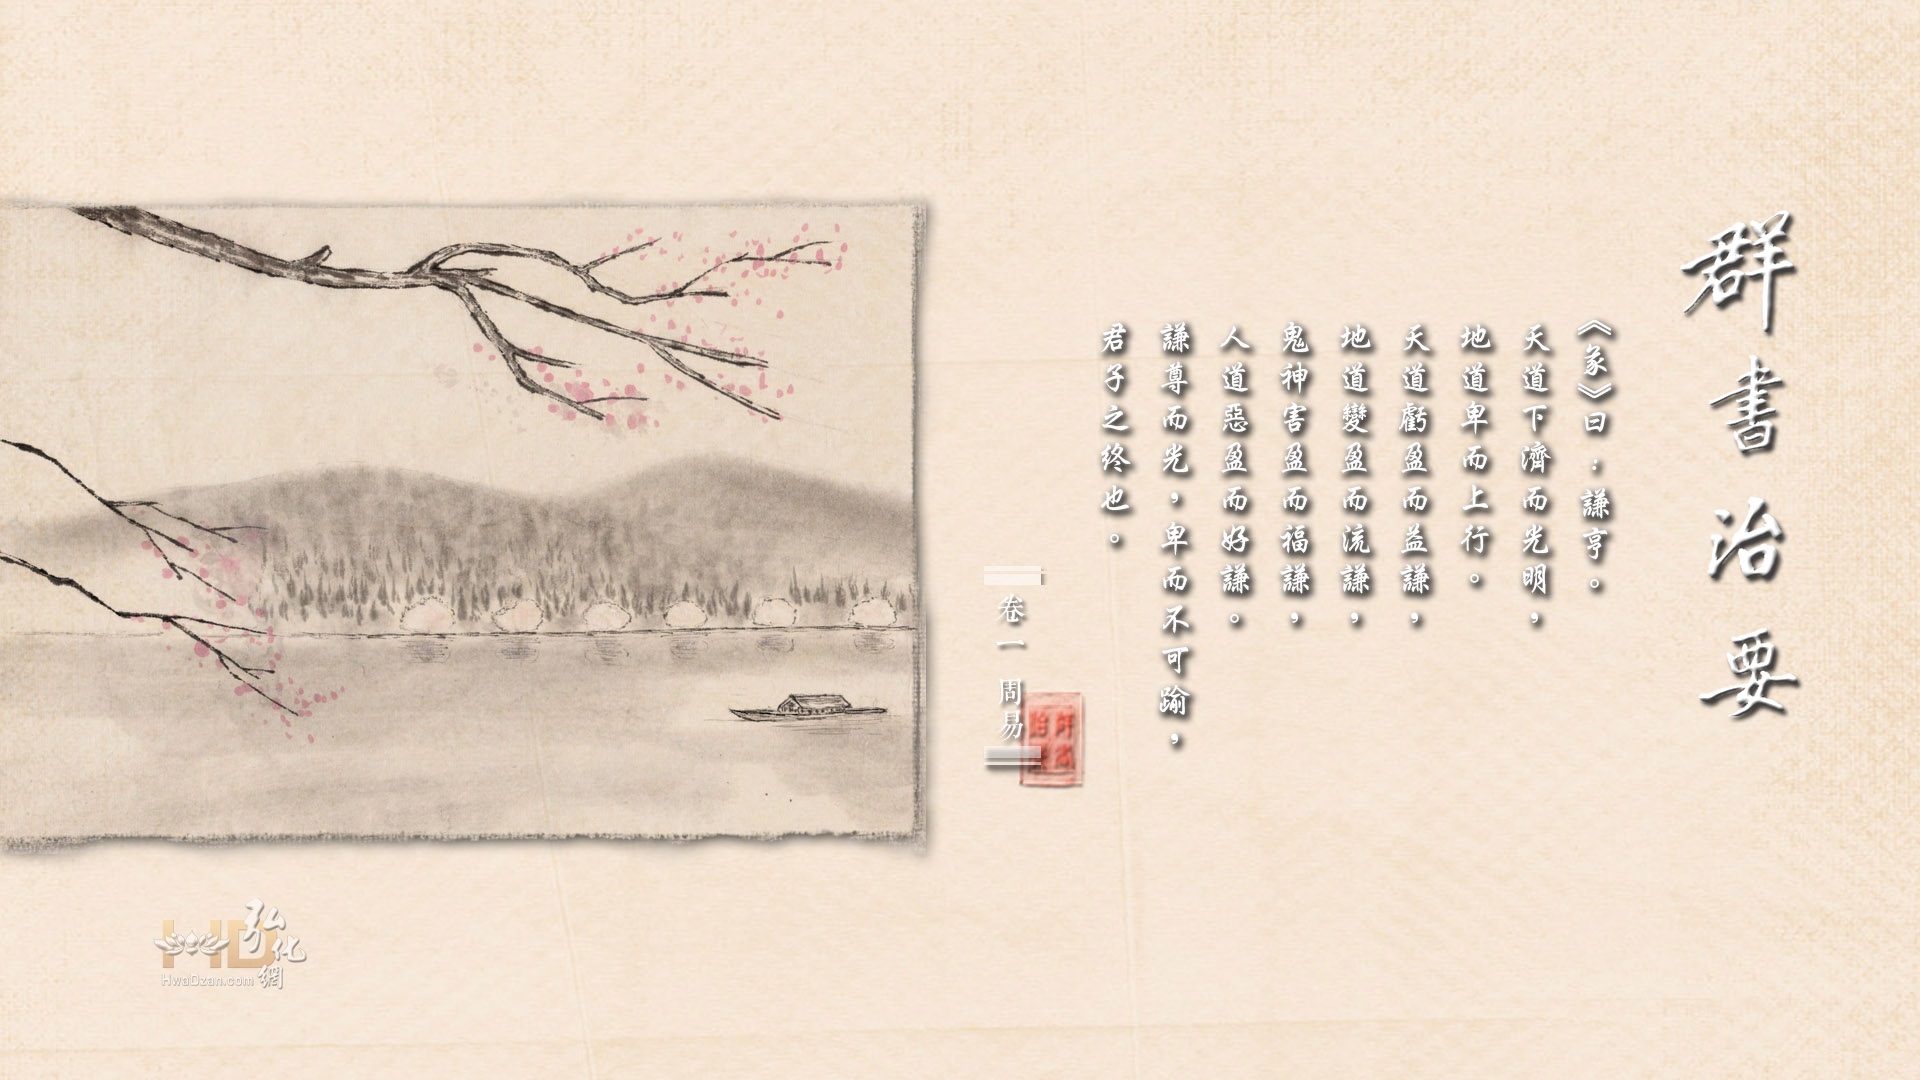 群書治要
《彖》曰：謙亨。
天道下濟而光明，
地道卑而上行。
天道虧盈而益謙，
地道變盈而流謙，
鬼神害盈而福謙，
人道惡盈而好謙。
謙尊而光，卑而不可踰，
君子之終也。
卷一 周易
HD 弘化網
HwaDzan.com